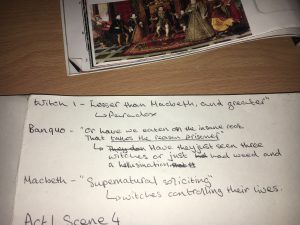 Witch 1 - "Lesser than Macbeth, and greater"
↳ Paradox
Banquo - "Or have we eaten on the insane root
That takes the reason prisoner"
↳ They Have they just seen three
witches or just had weed and
a hallucination
Macbeth - "Supernatural soliciting"
↳ witches controlling their lives.
Act 1 Scene 4